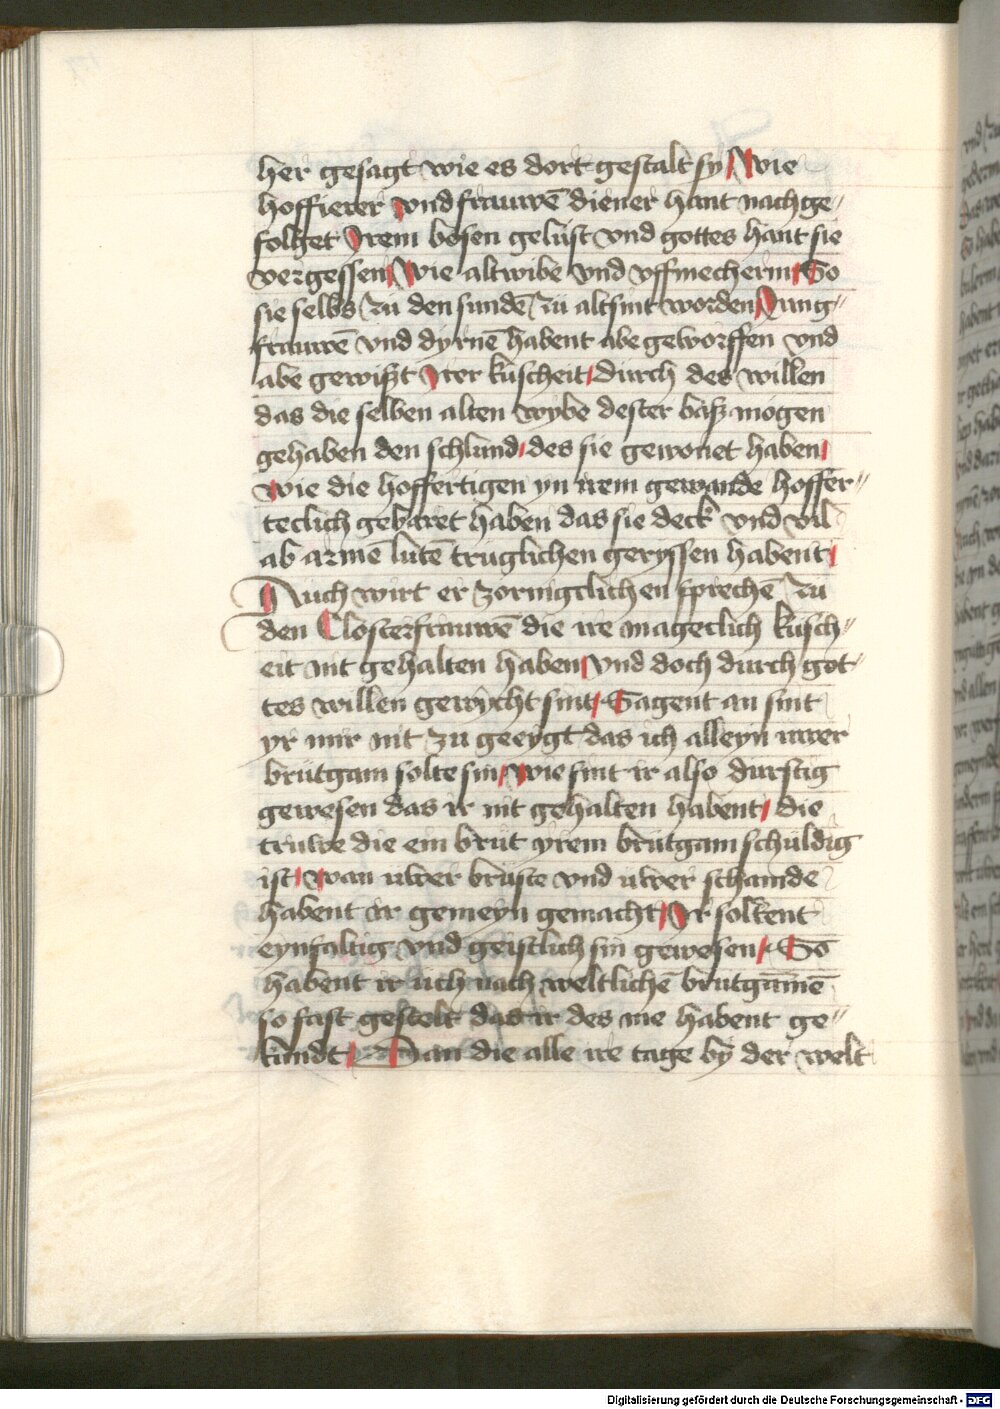 her gesagt wie es dort gestalt sy / Wie
hoffierer vnd frauwē diener hant nach ge//
folget Irem bosen gelust vnd gottes hant sie
vergessen / Wie alt wibe vnd vffmecherin / So
sie selbs zu den sundē zu alt sint worden / Jung//
frauwē vnd dyrnē habent abe geworffen vnd
abe gewißt Irer kuscheit / durch des willen
das die selben alten wybe dester baß mogen
gehaben den schlund / des sie gewonet haben /
wie die hoffertigen yn irem gewande hoffer//
teclich gebaret haben das sie deck vnd vil
ab armē lutē truglichen geryssen habent /
Auch wirt er zornigtlichen sprechē zu
den Closterfrauwē die ire magetlich kusch//
eit nit gehalten haben / vnd doch durch got
tes willen gewycht sint / Sagent an sint
yr mir nit zu geeygt das ich alleyn uwer
brutgam solte sin / wie sint ir also durstig
gewesen das ir nit gehalten habent / die
truwe die ein brut yrem brutgam schuldig
ist / wan uwer bruste vnd uwer schamde
habent ir gemeyn gemacht / Ir soltent
eynfaltig vnd geistlich sin gewesen / So
habent ir uch nach weltlichē brutgamē
so fast gestelt das ir des nie habent ge//
kundt / Dan die alle ire tage by der welt
Digitalisierung gefördert durch die Deutsche Forschungsgemeinschaft - DFG